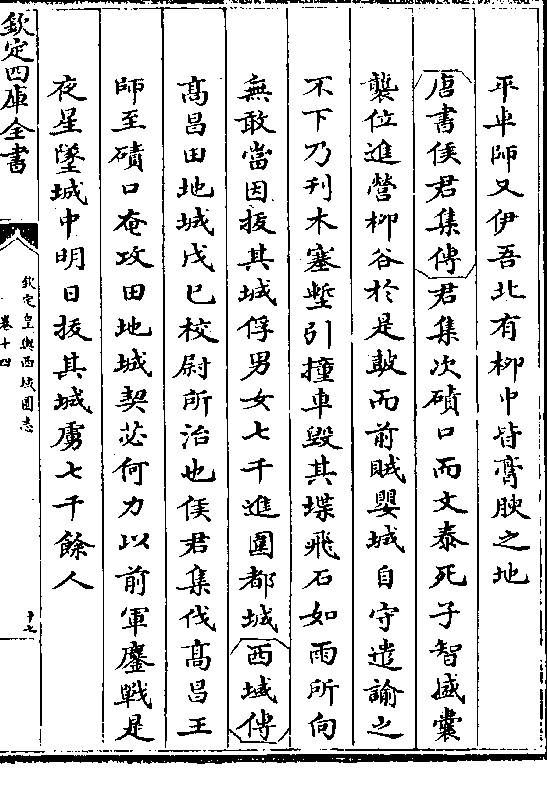 平車師又伊吾北有柳中皆膏腴之地
唐書侯君集傳君集次磧口而文泰死子智盛
襲位進營柳谷於是鼓而前賊嬰城自守遣諭之
不下乃刋木塞塹引撞車毀其堞飛石如雨所向
無敢當因拔其城俘男女七千進圍都城西域傳
髙昌田地城戊巳校尉所治也侯君集伐髙昌王
師至磧口奄攻田地城契苾何力以前軍鏖戰是
夜星墜城中明日拔其城虜七千餘人
欽定四庫全書
欽定皇輿西域圖志
卷十四
十七